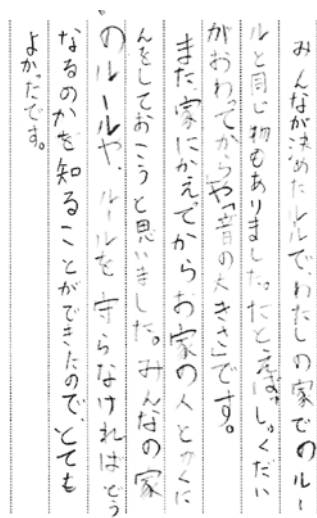 みんなが決めたルルで、わたしの家でのルー
ルと同じ物もありました。たとえば、しゅくだい
がおわってからや「音の大きさ」です。
また、家にかえてからお家の人とかくに
んをしておこうと思いました。みんなの家
のルールや、ルールを守らなければどう
なるのかを知ることができたので、とても
よかったです。